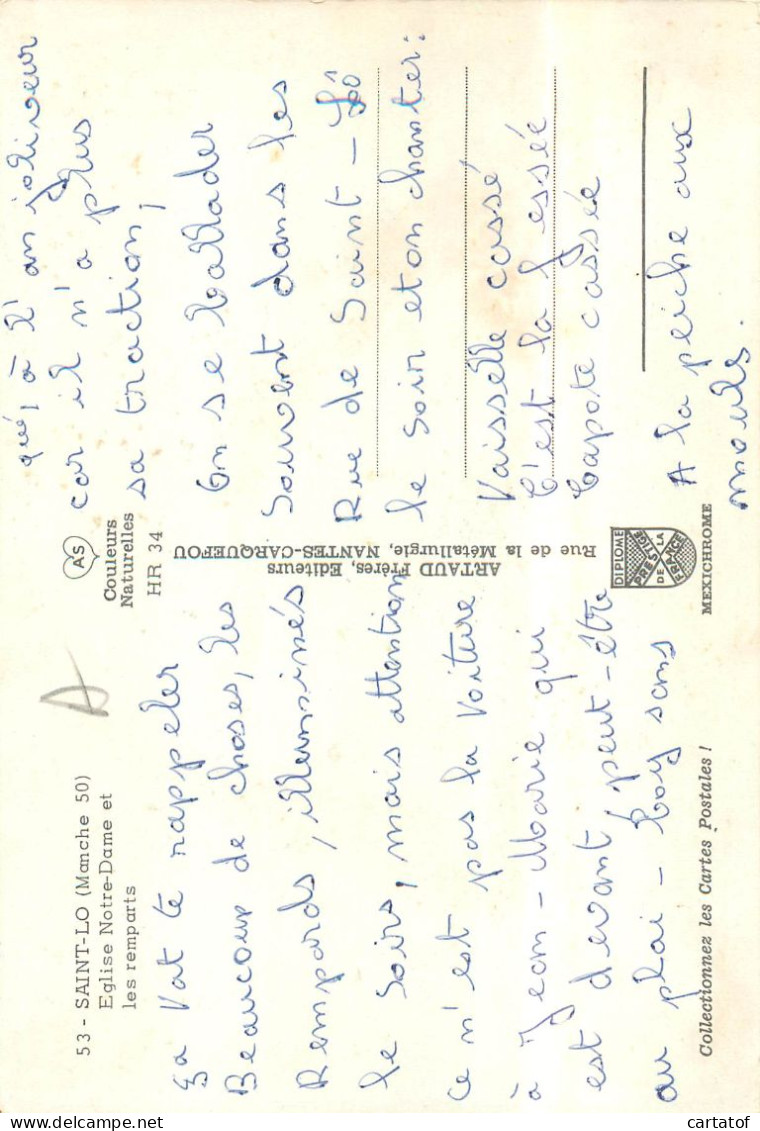 53 - SAINT-LO (Manche 50)
Eglise Notre-Dame et
les remparts
ça Vat te rappeler
Beaucoup de choses, les
Rempards, illuminés
le soirs, mais attention
ce n'est pas la voiture
à Jean-Marie qui
est devant peut-être
au plai-boy sans
Collectionnez les Cartes Postales !
A
AS
Couleurs
Naturelles
HR 34
ARTAUD Frères, Editeurs
Rue de la Métallurgie, NANTES-CARQUEFOU
DIPLOME
PRESTIGE
DE LA
FRANCE
MEXICHROME
qué, à l'an joliveur
car il n'a plus
sa traction,
On se ballader
Souvent dans les
Rue de Saint-Lô
le soir et on chanter:
Vaisselle cassé
C'est la fessée
Capote cassée
A la peiche aux
mouls.
cartatof